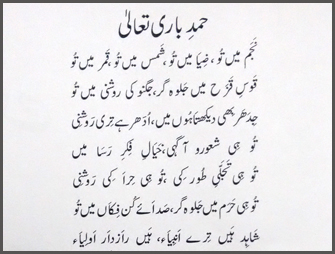 حمدِ باری تعالیٰ
نَجم میں تُو ، ضِیا میں تُو ، شَمس میں تُو ، قمر میں تُو
قوسِ قزَح میں جلوہ گر، جگنو کی روشنی میں تُو
جِدھر بھی دیکھتا ہوں میں، اُدھر ہے تِری رَوشنِی
تُو ہی شعورو آگہی، خیالِ فِکرِ رَسا میں
تُو ہی تَجلّیِ طور کی ، تُو ہی حِرا کِی رَوشنِی
تُو ہی حَرم میں جلوہ گر، صدائے کُن فکاں میں تُو
شاہِد ہَیں تِرے اَنبِیاء، ہَیں رازدار اَولِیاء